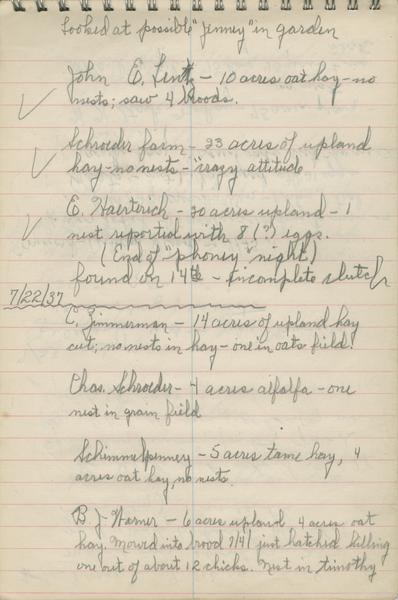 Looked at possible "Jenney" in garden
John E. Lintz - 10 acres oat hay - no
nests; saw 4 broods.
Schroeder farm - 23 acres of upland
hay - no nests - "crazy attitude
E. Haerterich - 20 acres upland - 1
nest reported with 8 (?) eggs.
(End of "phoney" night)
found on 14th - incomplete clutch
7/22/37
C. Zimmerman - 14 acres of upland hay
cut; no nests in hay - one in oats field.
Chas. Schroeder - 4 acres alfalfa - one
nest in grain field
Schimmelpenney - 5 acres tame hay, 4
acres oat hay, no nests.
B J Warner - 6 acres upland, 4 acres oat
hay. Mowed into brood 7/4/ just hatched killing
one out of about 12 chicks. Nest in timothy